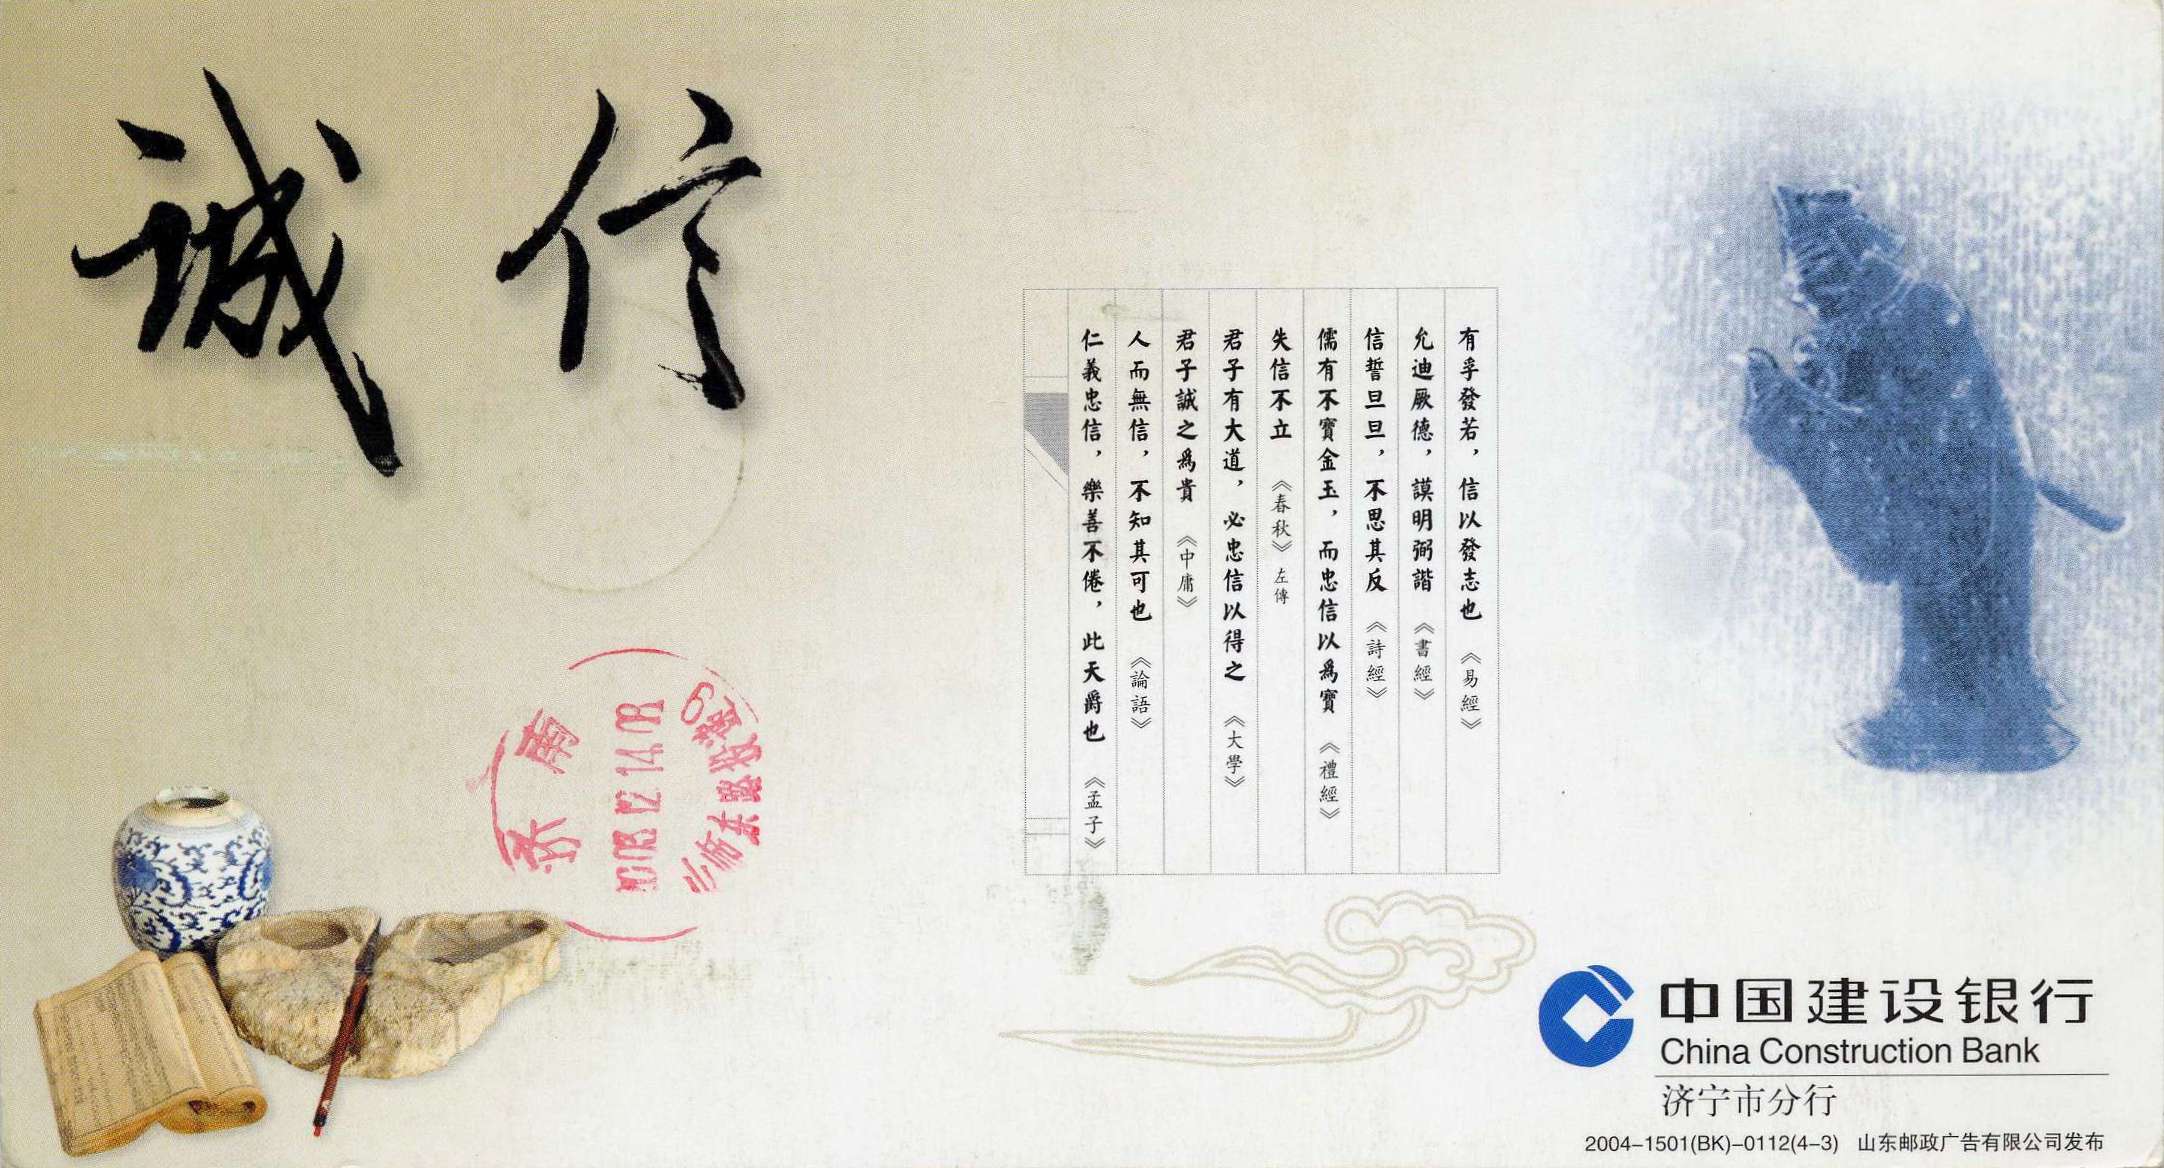 誠信
有孚發若，信以發志也 《易經》
允迪厥德，謨明弼諧 《書經》
信誓旦旦，不思其反 《詩經》
儒有不寶金玉，而忠信以爲寶 《禮經》
失信不立 《春秋》左傳
君子有大道，必忠信以得之 《大學》
君子誠之爲貴 《中庸》
人而無信，不知其可也 《論語》
仁義忠信，樂善不倦，此天爵也 《孟子》
济南
中国建设银行
China Construction Bank
济宁市分行
2004-1501(BK)-0112(4-3) 山东邮政广告有限公司发布